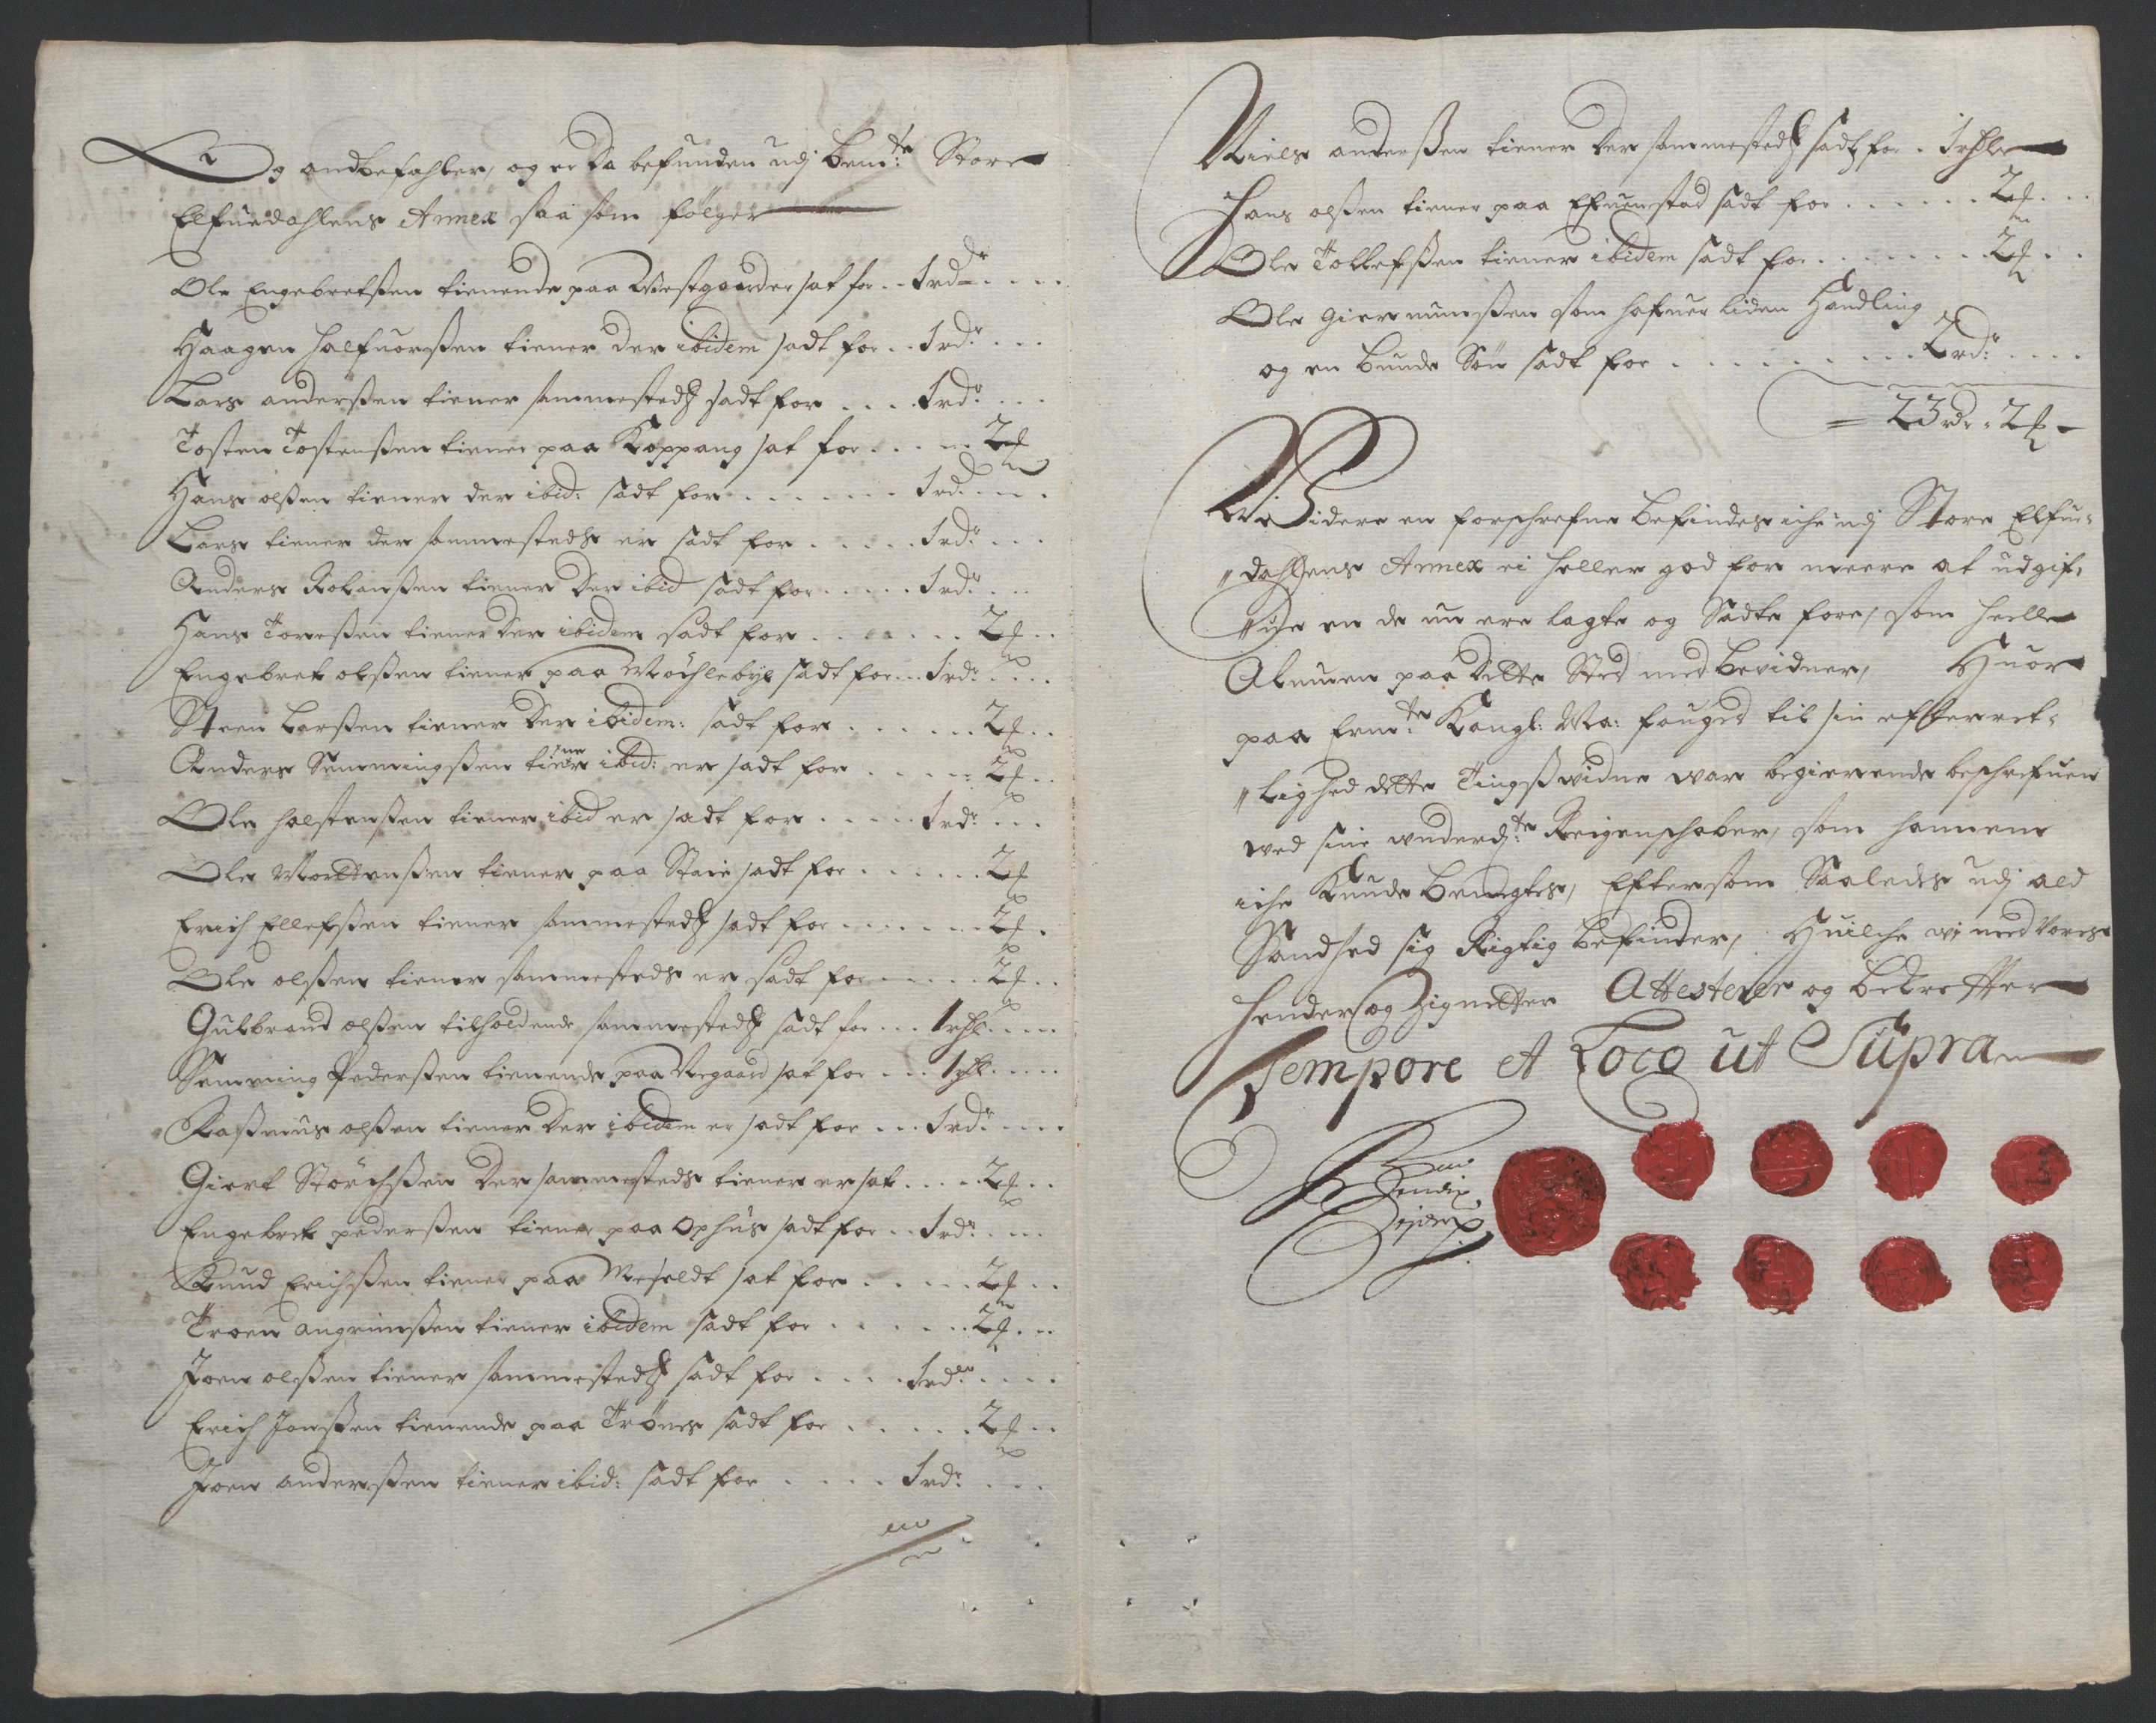 Og andbefahler, og er da befunden udj bem:te Store
Elfuedahlens Annex saa som følger
Ole Engebretsßen tienende paa Westgaarder sat for .. 1 rdr ....
Haagen Halfuorsßen tiener der ibidem sadt for .. 1 rdr ...
Lars andersßen tiener sammesteds sadt for .... 1 rdr ...
Tosten Tostensßen tiener paa Koppang sat for .... 2 ₰
Hans olsßen tiener der ibid: sadt for ....... 1 rd. ...
Lars tiener der sammesteds er sadt for ..... 1 rdr ...
Anders tiener der ibid sadt for ..... 1 rdr ...
Hans Toresßen tiener der ibidem sadt for ....... 2 ₰ ..
Engebret olsßen tiener paa Møchlebye sadt for ... 1 rdr ....
Steen Larsßen tiener der ibidem: sadt for ...... 2 ₰ ..
Anders Semmingsßen tiener ibid: er sadt for ..... 2 ₰ ..
Ole Holstensßen tiener ibid er sadt for ..... 1 rdr ...
Ole Mortensßen tiener paa Staie sadt for ...... 2 ₰
Erich Ellefsßen tiener sammesteds sadt for ...... 2 ₰ .
Ole olsßen tiener sammesteds er sadt for ..... 2 ₰ ..
Gulbrand olsßen tilholdende sammesteds sadt for ... 1 rdl ....
Semming Pedersßen tienende paa Negaard sat for ... 1 rdl ....
Rasmus olsßen tiener der ibidem er sadt for ... 1 rdr ....
Giert Størchsßen der sammesteds tiener er sat .... 2 ₰ ..
Engebret pedersßen tiener paa Ophus sadt for .. 1 rdr ...
Knud Erichsßen tiener paa Messeldt sat for ..... 2 ₰ ..
Troen angrimsßen tiener ibidem sadt for ...... 2 ₰ ..
Joen olsßen tiener sammesteds sadt for .... 1 rdr ....
Erich Jonsßen tienende paa Trønes sadt for ..... 2 ₰ ..
Joen andersßen tiener ibid: sadt for .... 1 rdr ...
Niels andersßen tiener der sammesteds sadt for . 1 rdlr
Hans olsßen tiener paa Efuenstad sadt for ...... 2 ₰ ...
Ole Tollefsßen tiener ibidem sadt for ........ 2 ₰ ..
Ole Giermunsßen som hafuer liden Handling
og en bunde Søn sadt for .......... 2 rdr ....
= 23 rdr = 2 ₰ -
Widere en forschrefne befindes iche udj Store Elfue-
dahlens Annex ei heller god for meere at udgif-
ue en de nu ere lagte og Sadte fore, som heele
Almuen paa dette Sted med bevidner, Huor
paa Erm:te Kongl: Ma: fouged til sin efterret-
lighed dette Tingswidne war begierende beschrefuen
wed sine underd:te Reigenschaber, som hannem
iche kunde benegtes, Eftersom Saaledes udj ald
Sandhed sig Rigtig befinder, Huilche wi med Vores
Hender og Zignetter Attesterer og bekreffter
Tempore et Loco ut Supra